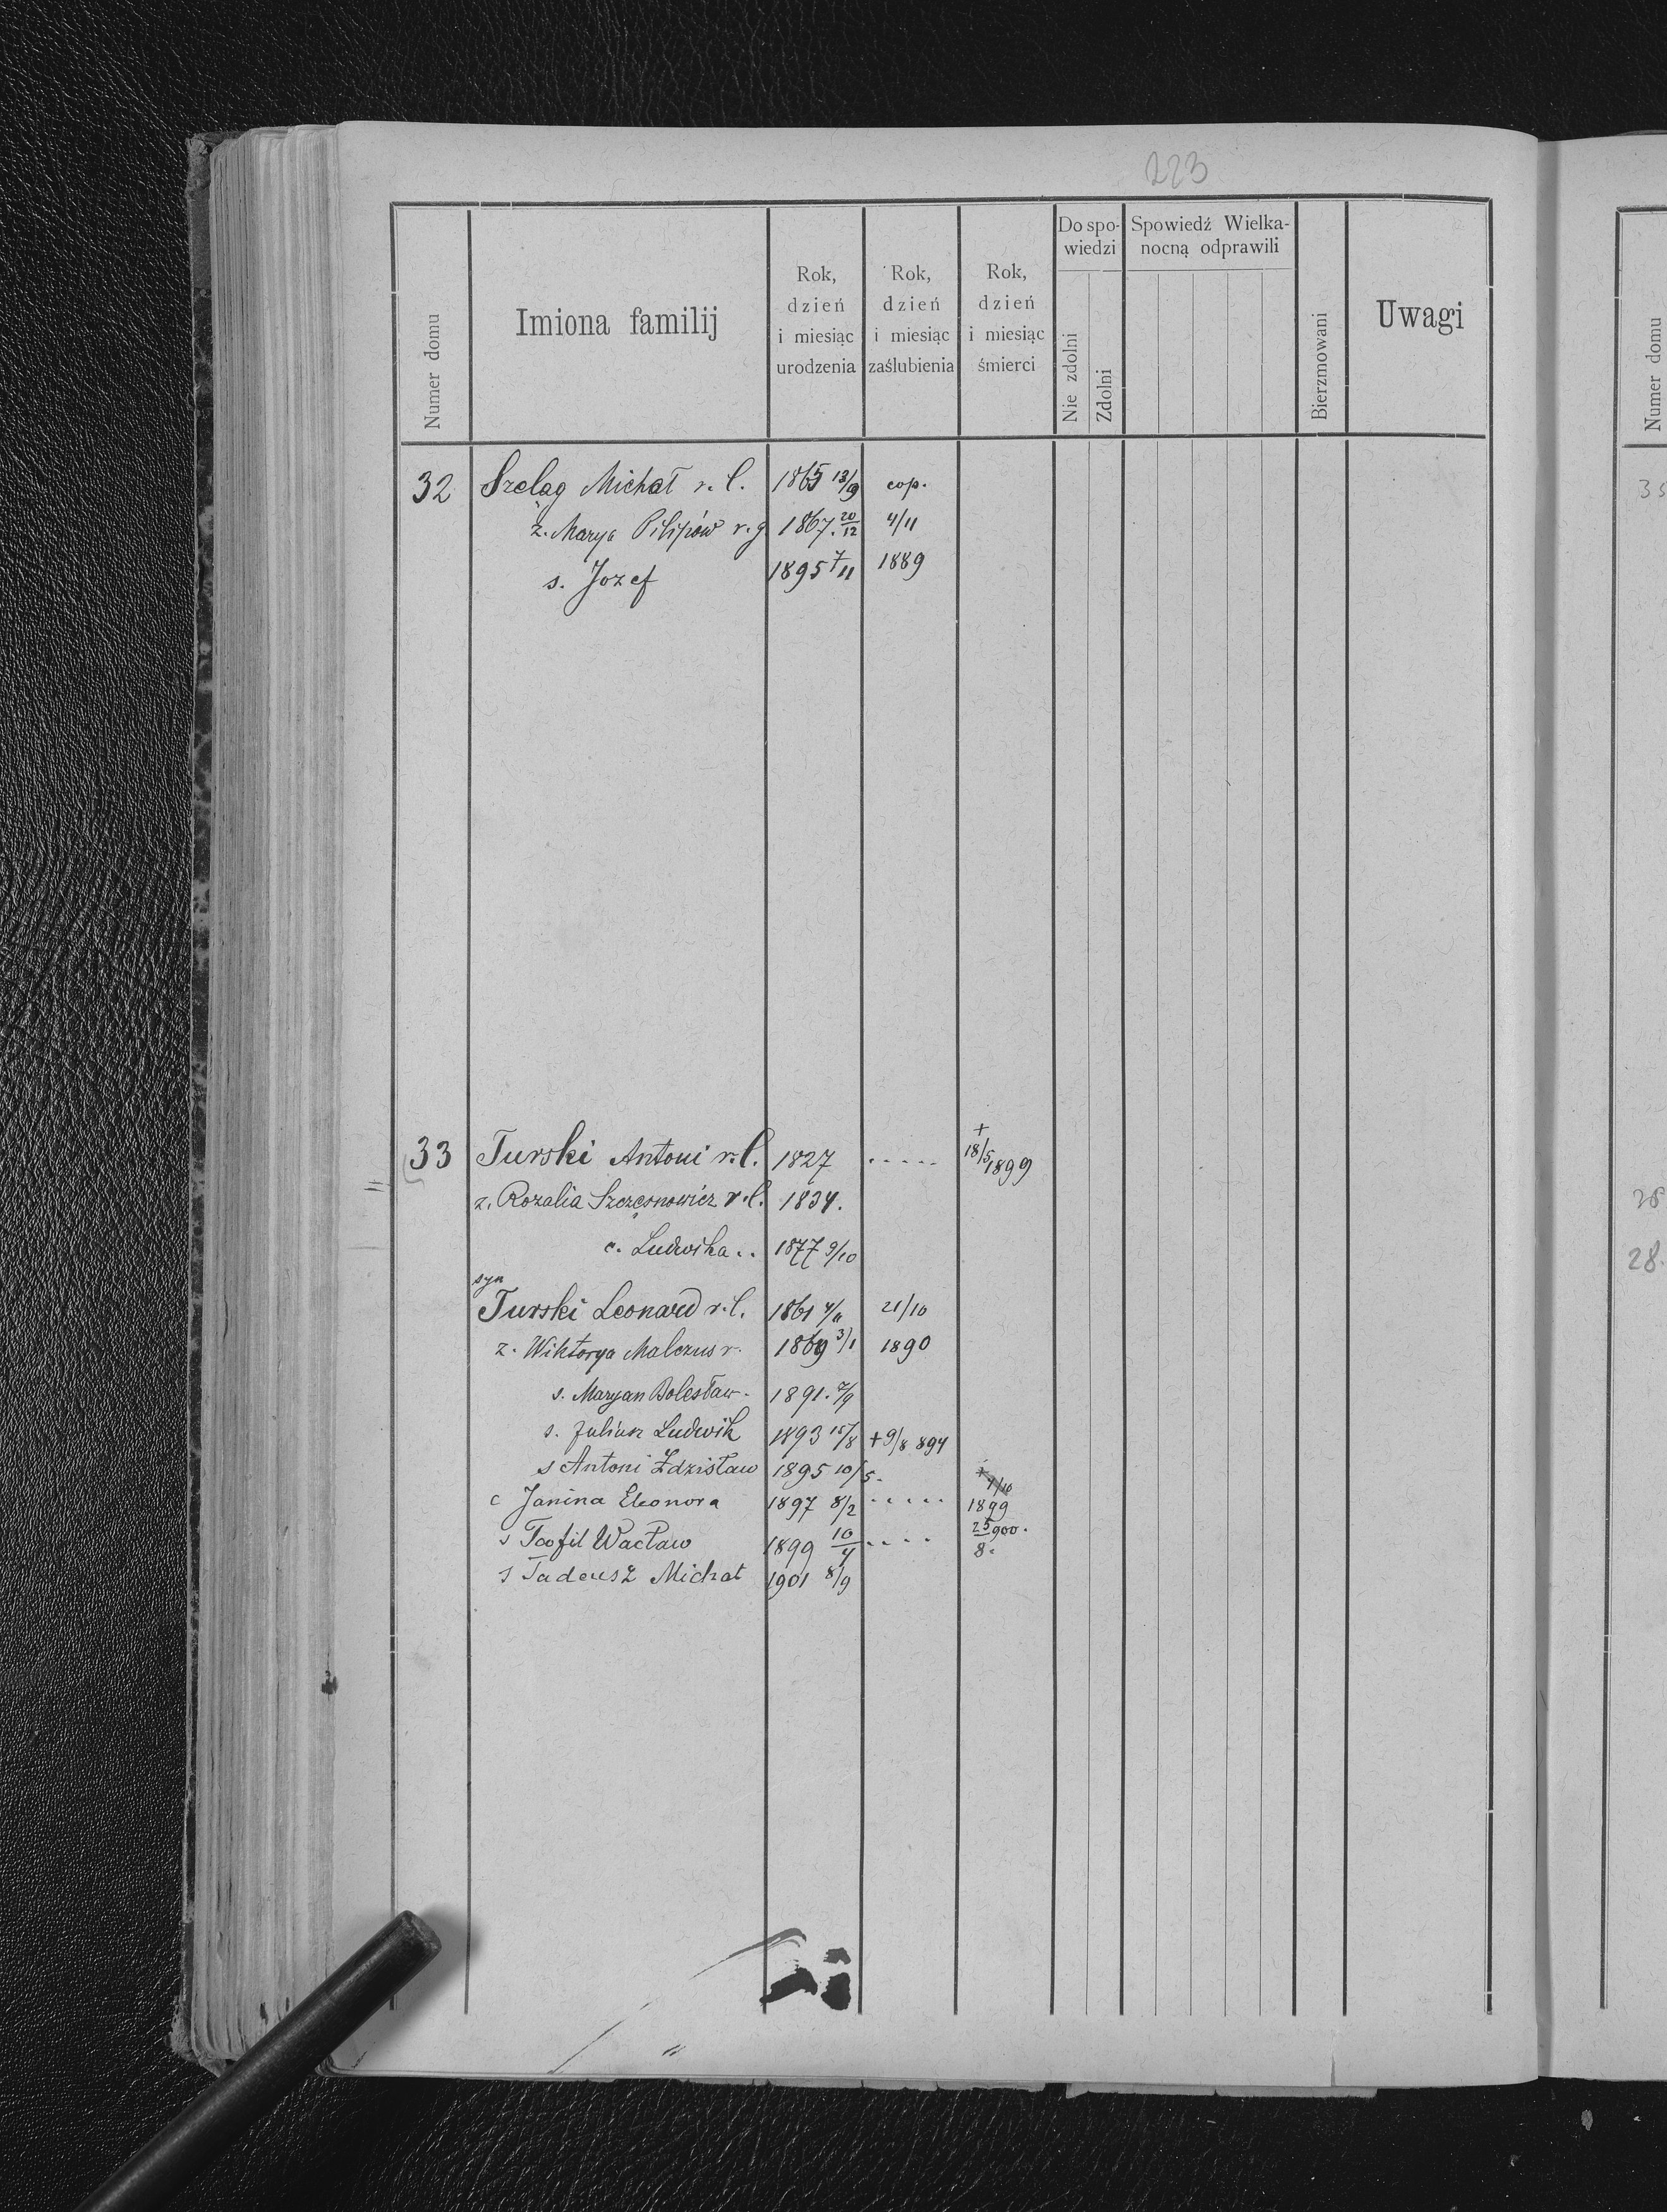 223
Numer domu
Imiona familij
Rok, dzień i miesiąc urodzenia
Rok, dzień i miesiąc zaślubienia
Rok, dzień i miesiąc śmierci
Do spo-wiedzi
Nie zdolni
Zdolni
Spowiedź Wielka-nocną odprawili
Bierzmowani
Uwagi
32 Szeląg Michał r. l. 1865 13/9 cop.
ż. Marya Pilipów r. g 1867. 20/12 4/11
s. Jozef 1895 7/11 1889
33 Turski Antoni r. l. 1827 ..... + 18/5 1899
ż. Rozalia Szczęsnowicz r. l. 1834.
c. Ludwika .. 1877 9/10
syn
Turski Leonard r. l. 1861 4/11 21/10
z. Wiktorya Malczus r. 1869 3/1 1890
s. Maryan Bolesław. 1891. 2/9
s. Juliusz Ludwik 1893 15/8 + 9/8 894
s Antoni Zdzisław 1895 10/5.
c Janina Eleonora 1897 8/2 ..... + 4/10 1899
s Teofil Wacław 1899 10/4 .... 25/8 900.
s Tadeusz Michał 1901 8/9
Numer domu
35
28
28.